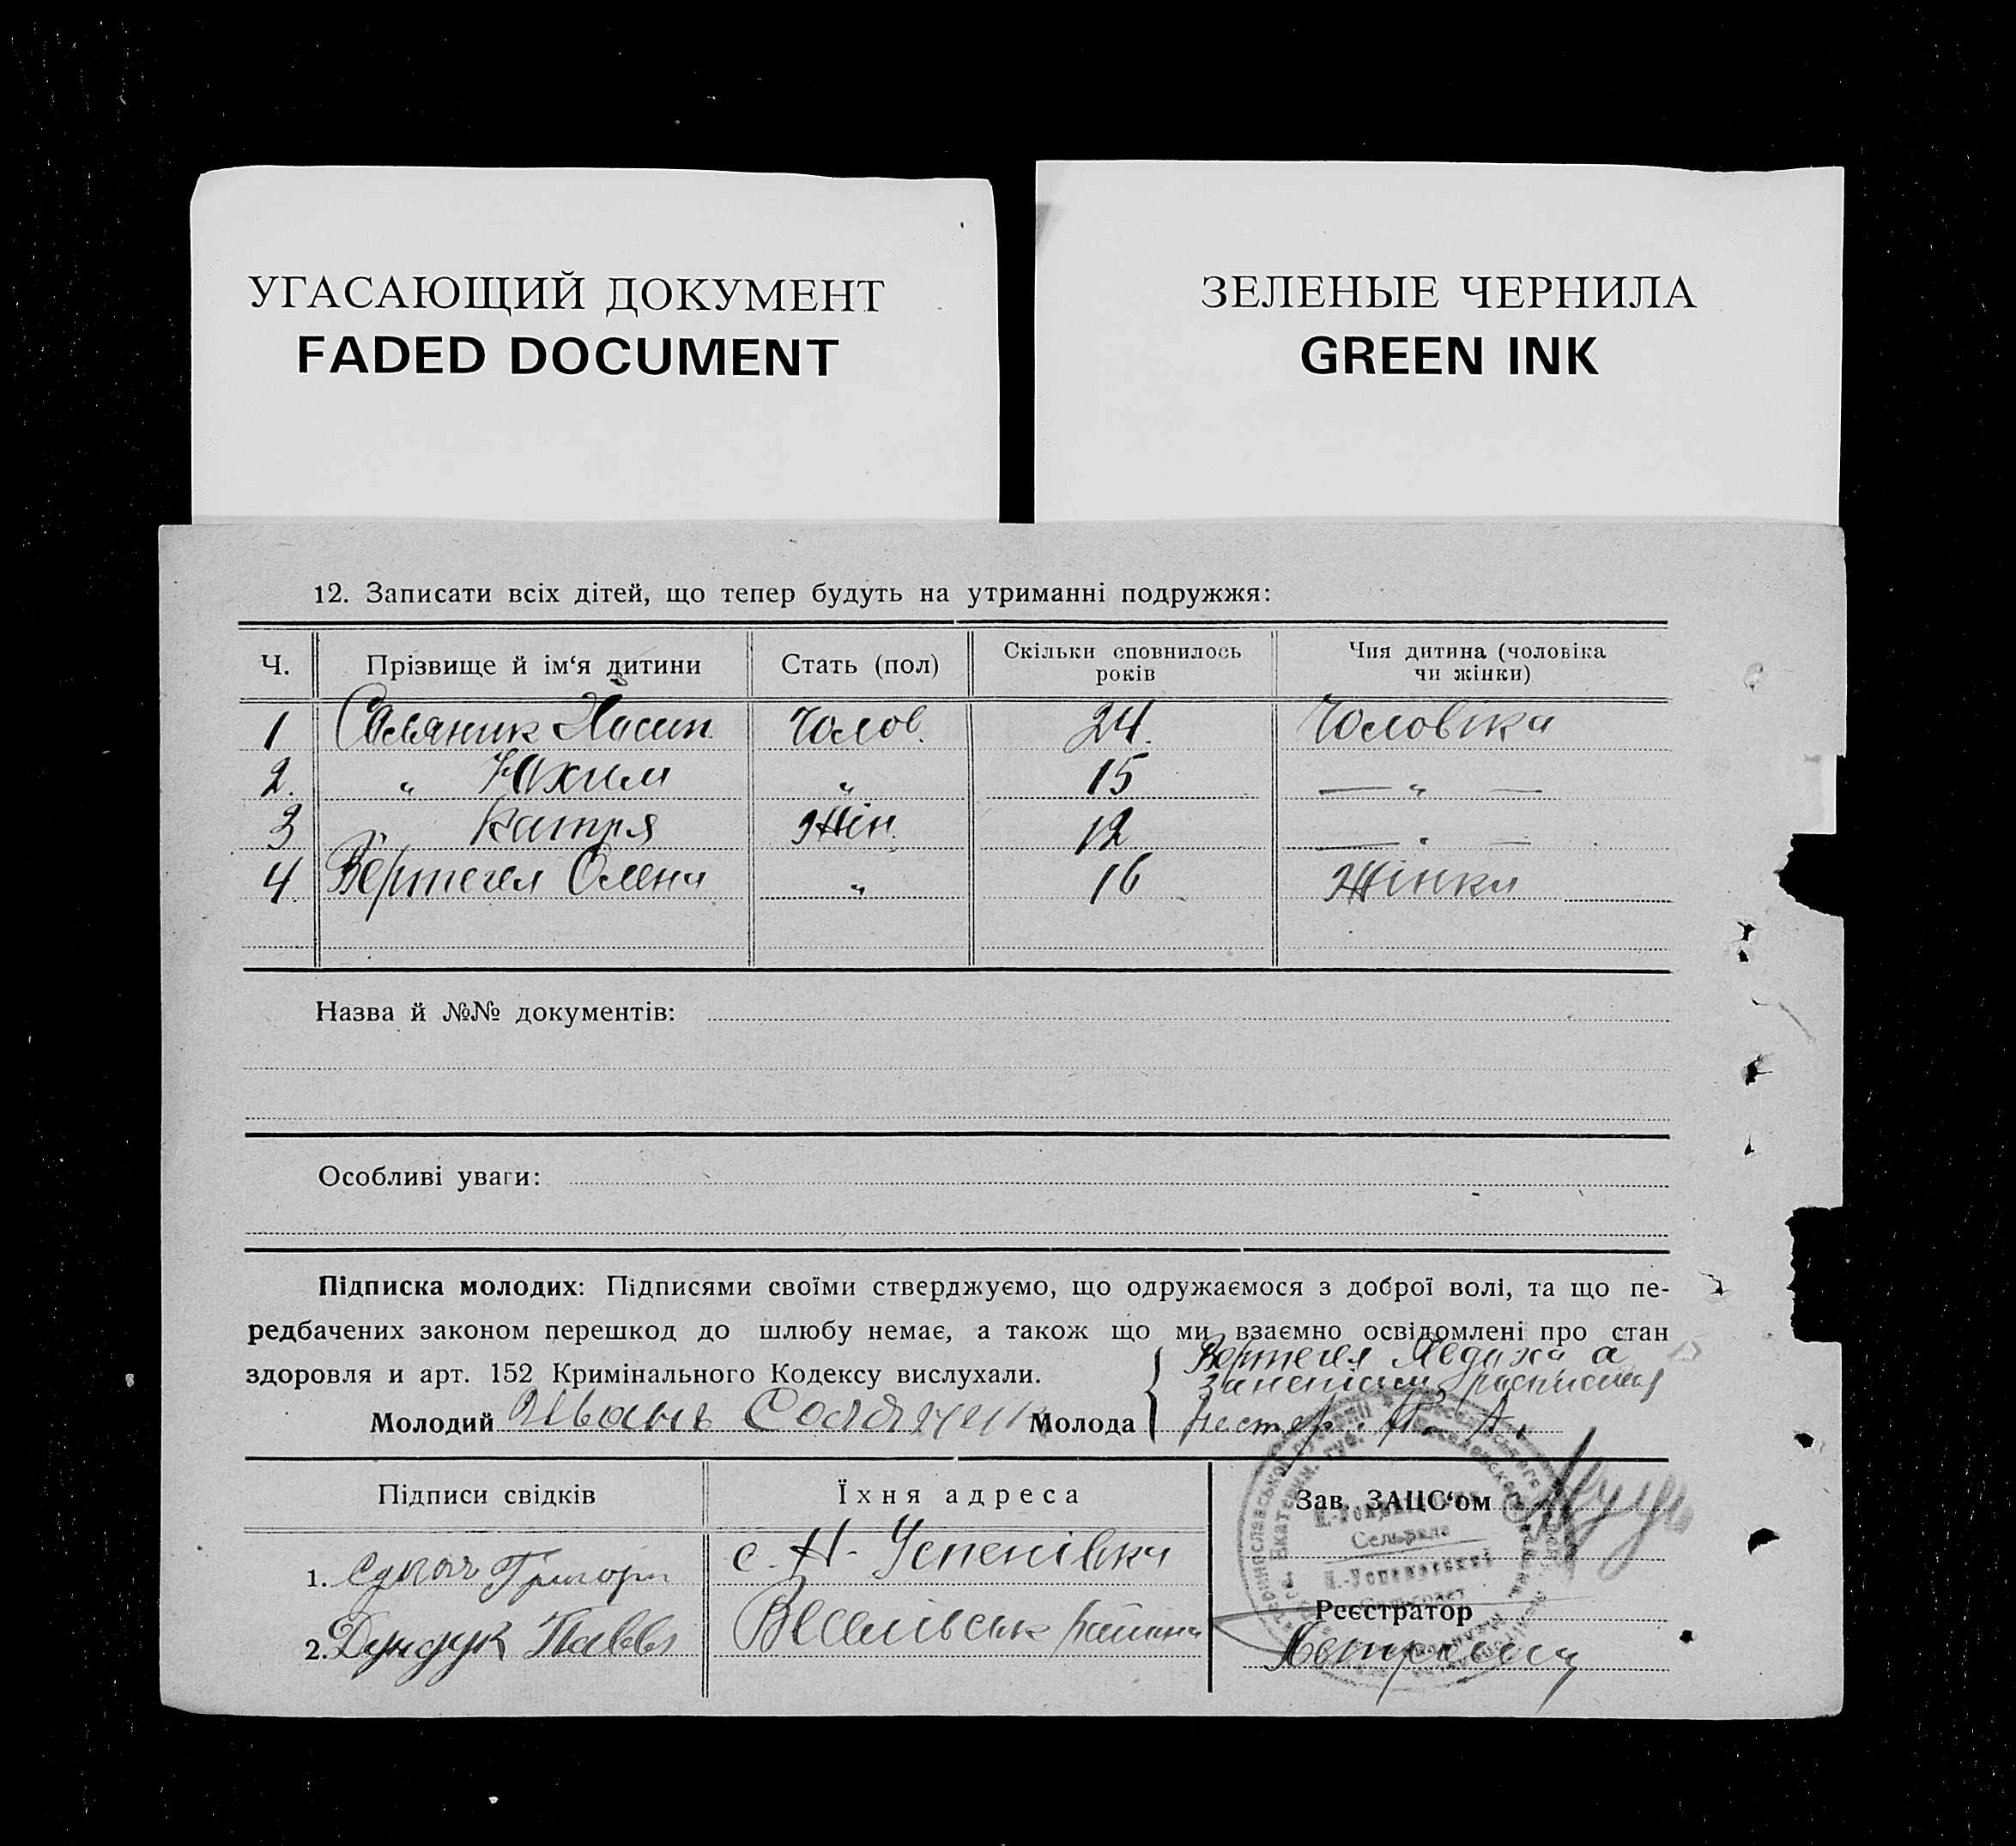 УГАСАЮЩИЙ ДОКУМЕНТ
FADED DOCUMENT
ЗЕЛЕНЫЕ ЧЕРНИЛА
GREEN INK
12. Записати всіх дітей, що тепер будуть на утриманні подружжя:
Ч. Прізвище й ім‘я дитини Стать (пол) Скільки сповнилось років Чия дитина (чоловіка чи жінки)
1 Чолов. 24. Чоловіка
2. " Юхим " 15 — " —
3 " Катря Жін. 12 — " —
4. Вертегел Олена " 16 Жінки
Назва й №№ документів:
Особливі уваги:
Підписка молодих: Підписями своїми стверджуємо, що одружаємося з доброї волі, та що пе-
редбачених законом перешкод до шлюбу немає, а також що ми взаємно освідомлені про стан
здоровля и арт. 152 Кримінального Кодексу вислухали.
Вертегел а
Молодий Иванъ Молода
Підписи свідків Їхня адреса Зав. ЗАЦС‘ом
1. Григорій с. Н-Успенівка
2. Дундук Павел Веселівськ району
Реєстратор